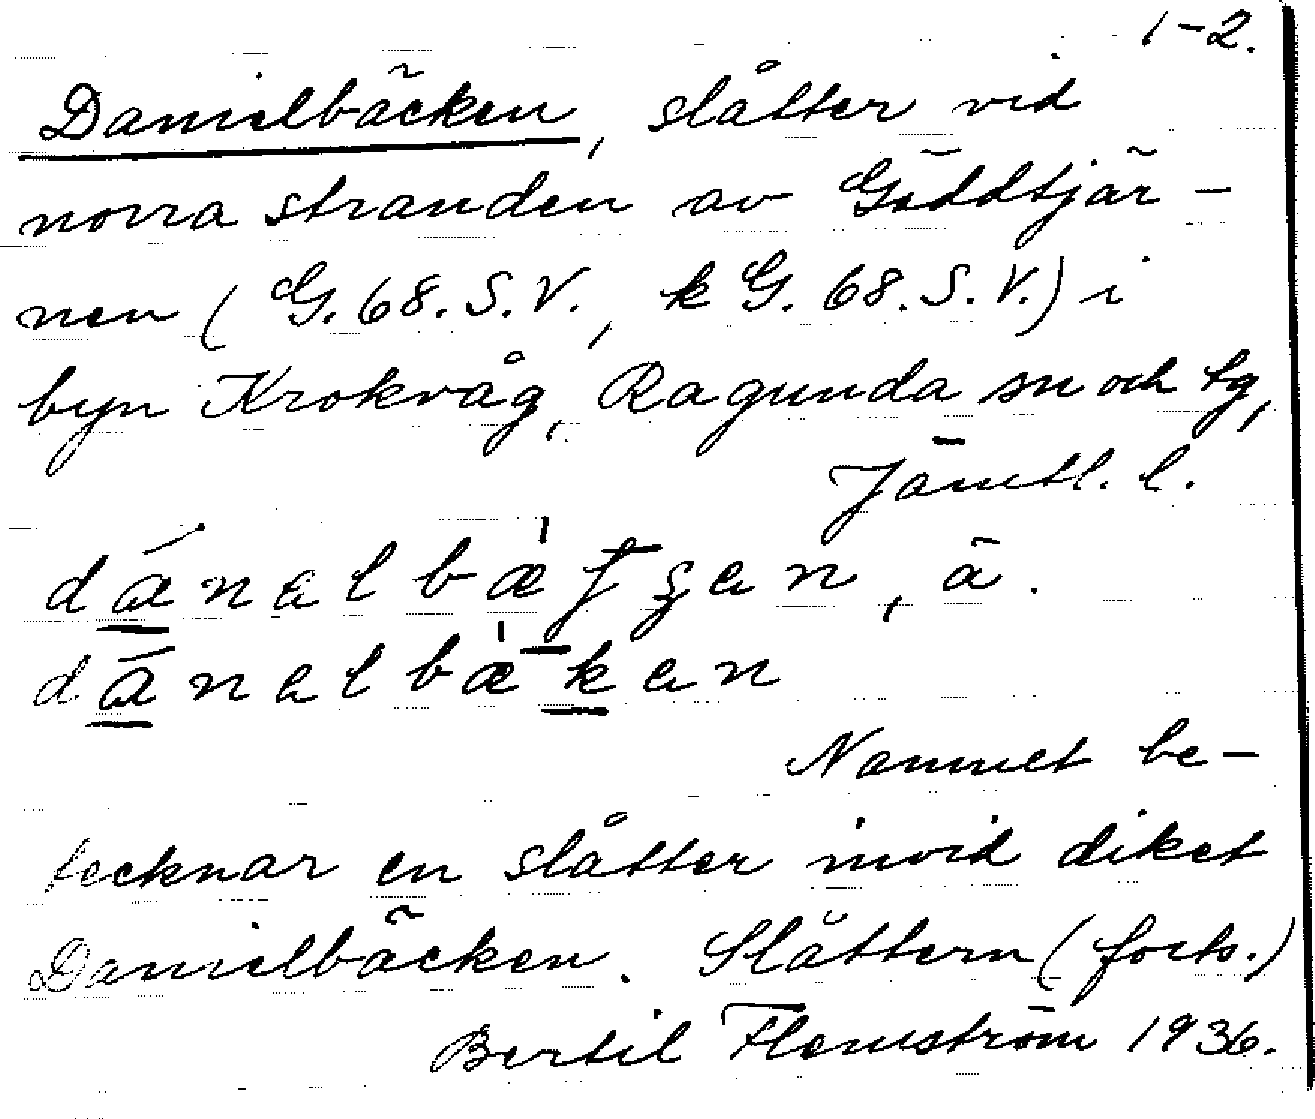 1-2.
Danielbäcken, slåtter vid
norra stranden av Gäddtjär-
nen (G. 68. S. V., k G. 68. S. V.) i
byn Krokvåg, Ragunda sn och tg,
Jämtl. l.
dánalbæ̀ʃʒan, ā.
dánalbæ̀kan
Namnet be-
tecknar en slåtter invid diket
Danielbäcken. Slåttern (forts.)
Bertil Flemström 1936.